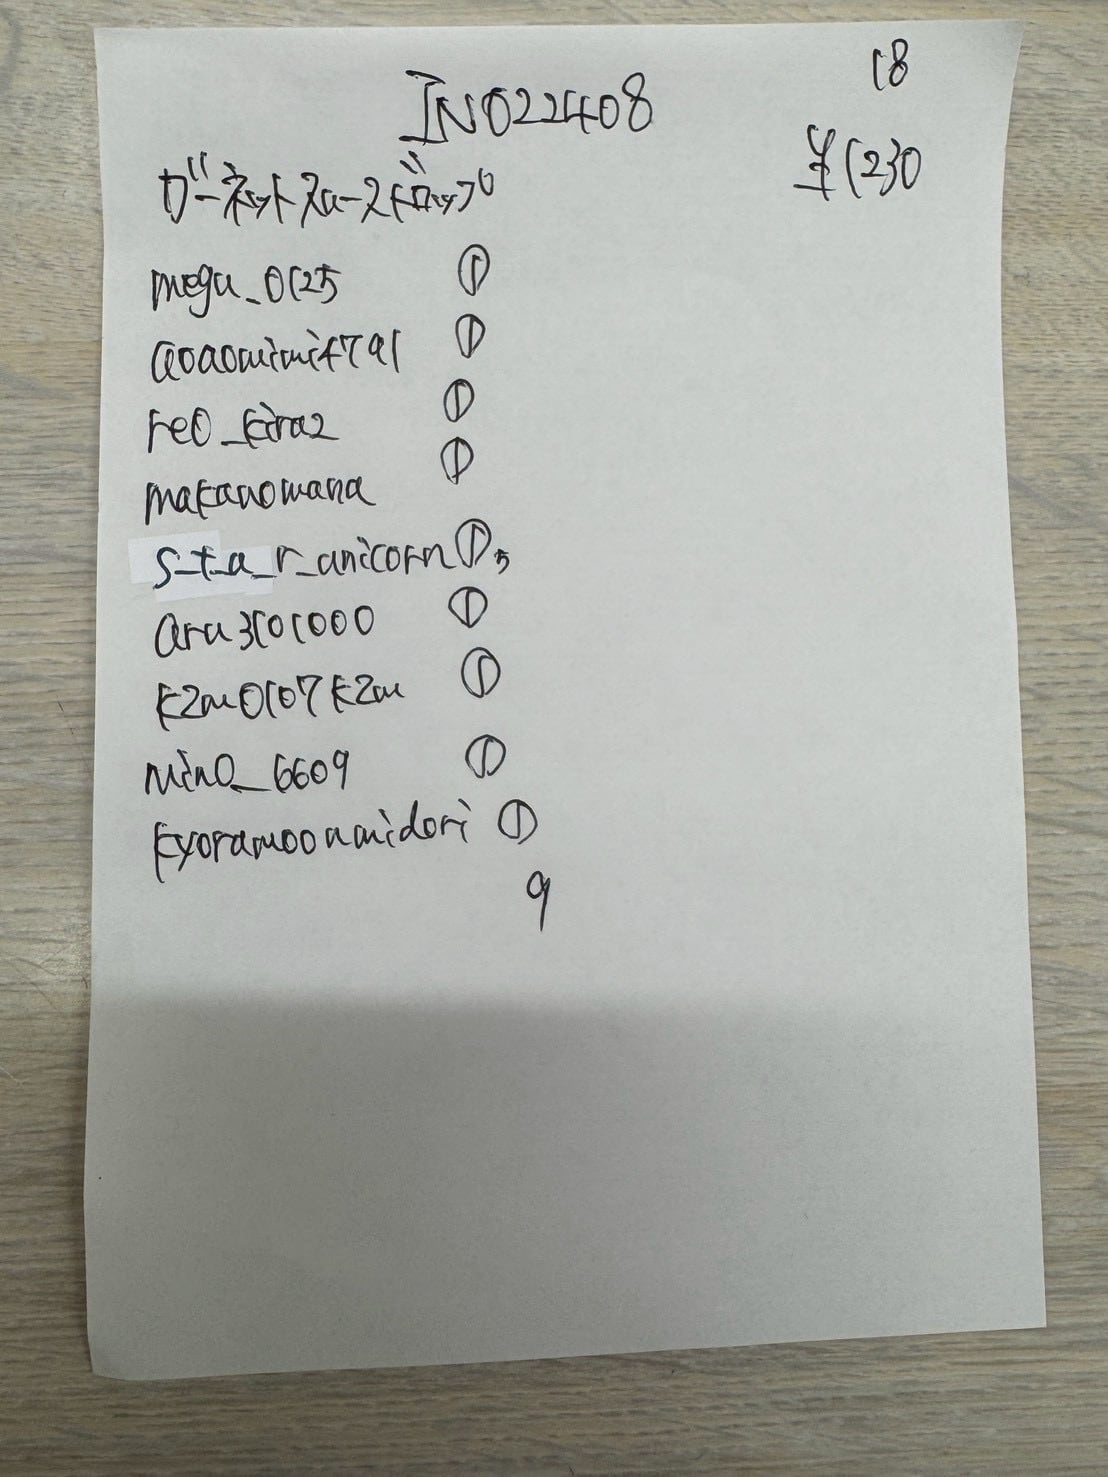 18
INO22408
¥1230
ガーネットスルースドロップ
megu_0125
aoaomimi4791
reo_kira2
makanomana
s_t_a_r_unicorn ①,5
aru3101000 ①
kzm0107kzm ①
nino_6609 ①
kyoramoonmidori ①
9